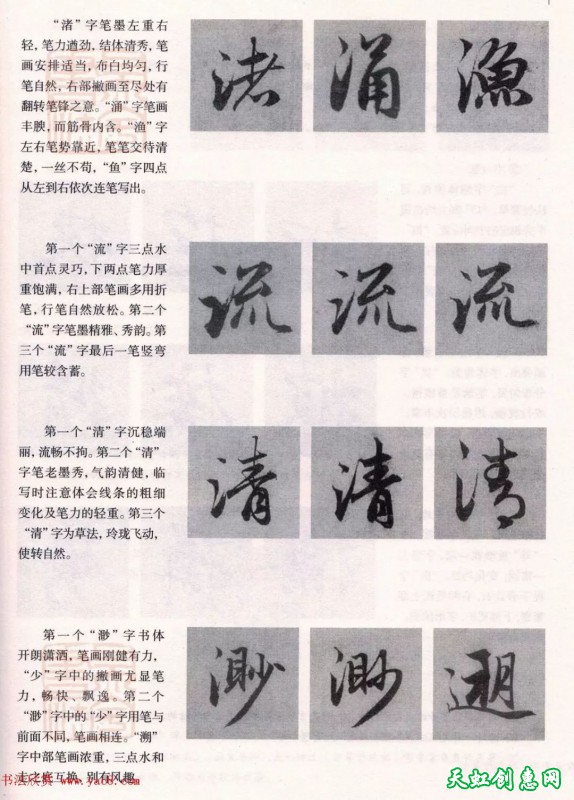 “渚”字笔墨左重右
轻，笔力遒劲，结体清秀，笔
画安排适当，布白均匀，行
笔自然，右部撇画至尽处有
翻转笔锋之意。“涌”字笔画
丰腴，而筋骨内含。“渔”字
左右笔势靠近，笔笔交待清
楚，一丝不苟，“鱼”字四点
从左到右依次连笔写出。
渚 涌 渔
第一个“流”字三点水
中首点灵巧，下两点笔力厚
重饱满，右上部笔画多用折
笔，行笔自然放松。第二个
“流”字笔墨精雅、秀韵。第
三个“流”字最后一笔竖弯
用笔较含蓄。
流 流 流
第一个“清”字沉稳端
丽，流畅不拘。第二个“清”
字笔老墨秀，气韵清健，临
写时注意体会线条的粗细
变化及笔力的轻重。第三个
“清”字为草法，玲珑飞动，
使转自然。
清 清 清
第一个“渺”字书体
开朗潇洒，笔画刚健有力，
“少”字中的撇画尤显笔
力，畅快、飘逸。第二个
“渺”字中的“少”字用笔与
前面不同，笔画相连。“溯”
字中部笔画浓重，三点水和
走之底互换，别有风趣。
渺 渺 遡
书法欣赏 www.yac8.com
天虹创意网